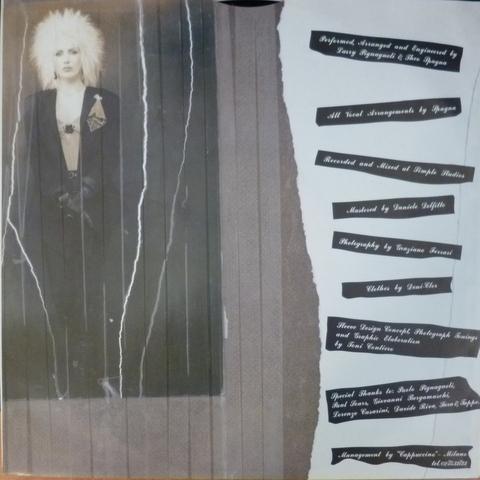 Performed, Arranged and Engineered by
Larry Pignagnoli & Theo Spagna
All Vocal Arrangements by Spagna
Recorded and Mixed at Simple Studios
Mastered by Daniele Delfitto
Photography by Graziano Ferrari
Clothes by Deni Cler
Sleeve Design Concept, Photograph Tonings
and Graphic Elaboration
by Toni Contiero
Special Thanks to: Paolo Pignagnoli,
Paul Sears, Giovanni Bergamaschi,
Lorenzo Casarini, Davide Riva, Sara &
Management by "Cappuccino" - Milano
tel.